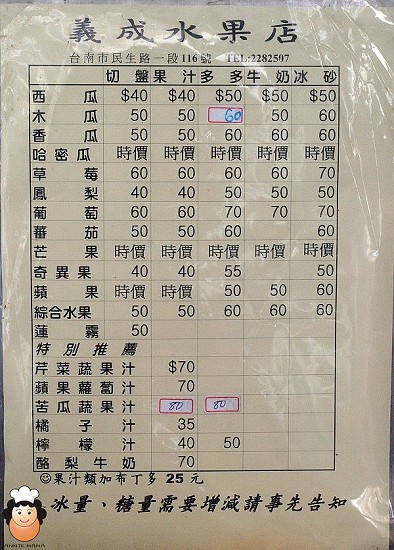 義成水果店
台南市民生路一段116號 TEL:2282597
切盤 果汁 多多 牛奶 冰砂
西瓜 $40 $40 $50 $50 $50
木瓜 50 50 60 50 60
香瓜 50 50 60 60 60
哈密瓜 時價 時價 時價 時價 時價
草莓 60 60 60 60 70
鳳梨 40 40 50 50 50
葡萄 60 60 70 70 70
蕃茄 50 50 60 60
芒果 時價 時價 時價 時價 時價
奇異果 40 40 55 50
蘋果 時價 時價 50 50 60
綜合水果 50 50 60 60 60
蓮霧 50
特別推薦
芹菜蔬果汁 $70
蘋果蘿蔔汁 70
苦瓜蔬果汁 80 80
橘子汁 35
檸檬汁 40 50
酪梨牛奶 70
☺果汁類加布丁多 25 元
冰量、糖量需要增減請事先告知
ANNIE MAMA